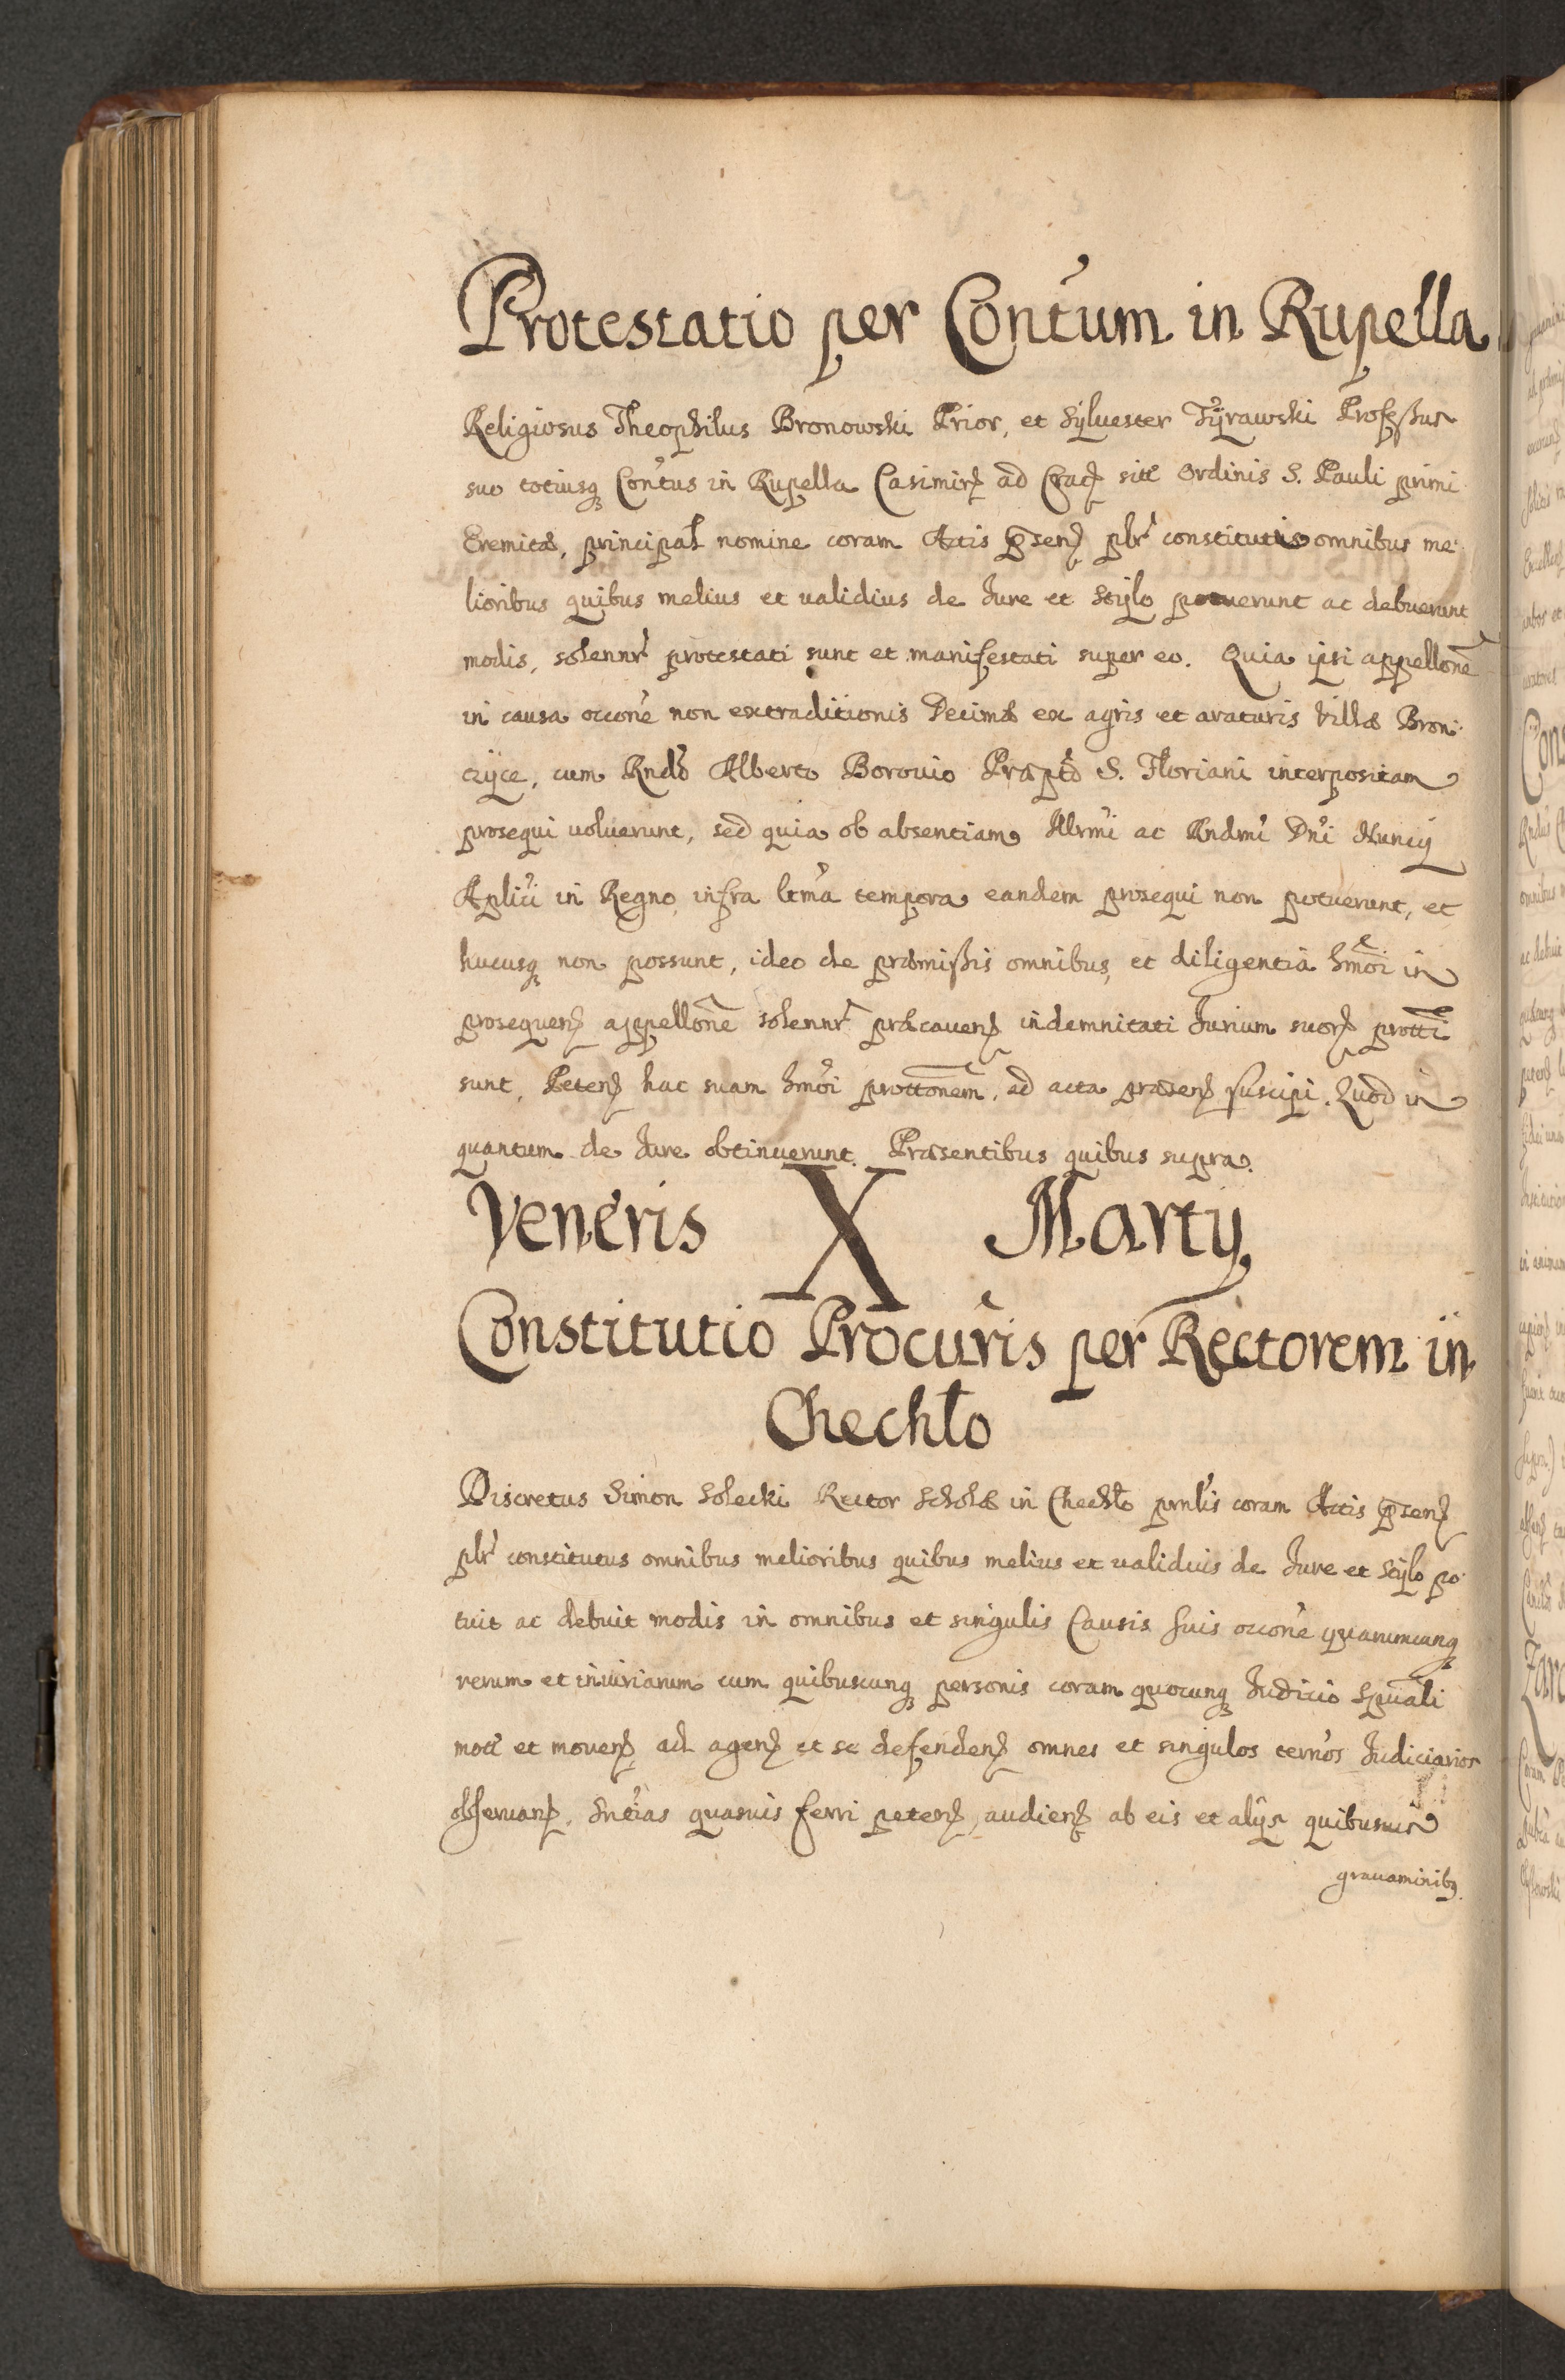 Protestatio per Contum in Rupella
Religiosus Theophilus Bronowski Prior, et Sylvester Tyrawski Professus
suo totiusq Contus in Rupella Casimirs ad Crac sitt Ordinis S. Pauli primi
Eremitæ, principal nomine coram Actis psen plr constitutis omnibus me
lioribus quibus melius et validius de Jure et Stylo potuerunt ac debuerunt
modis, solennr protestati sunt et manifestati super eo. Quia ipsi appellone
in causa occone non extraditionis Decimæ ex agris et araturis Villæ Bron
czyce, cum Rndo Alberto Borovio Præpto S. Floriani interpositam
prosequi uoluerunt, sed quia ob absentiam Illrmi ac Rndmi Dni Nuncij
Aplici in Regno infra ltma tempora eandem prosequi non potuerunt, et
hucusq non possunt, ideo de præmissis omnibus et diligentia hmoi in
prosequen appellone solennr præcauen indemnitati Jurium suor protti
sunt, Peten hac suam hmoi prottonem, ad acta præsen suscipi. Quod in
quantum de Jure obtinuerunt. Præsentibus quibus supra.
Veneris X Martij
Constitutio Procuris per Rectorem in
Chechło
Discretus Simon Solecki Rector Scholæ in Chechło prnlis coram Actis psen
plr constitutus omnibus melioribus quibus melius et validuis de Jure et Stylo po
tuit ac debuit modis in omnibus et singulis Causis suis occone quarumcunq
rerum et iniuriarum cum quibuscunq personis coram quocunq Judicio Spuali
mott et mouen ad agen et se defenden omnes et singulos ternos Judiciarios
obseruan, Sntias quasuis ferri peten, audien ab eis et alijs quibusuis
grauaminibq